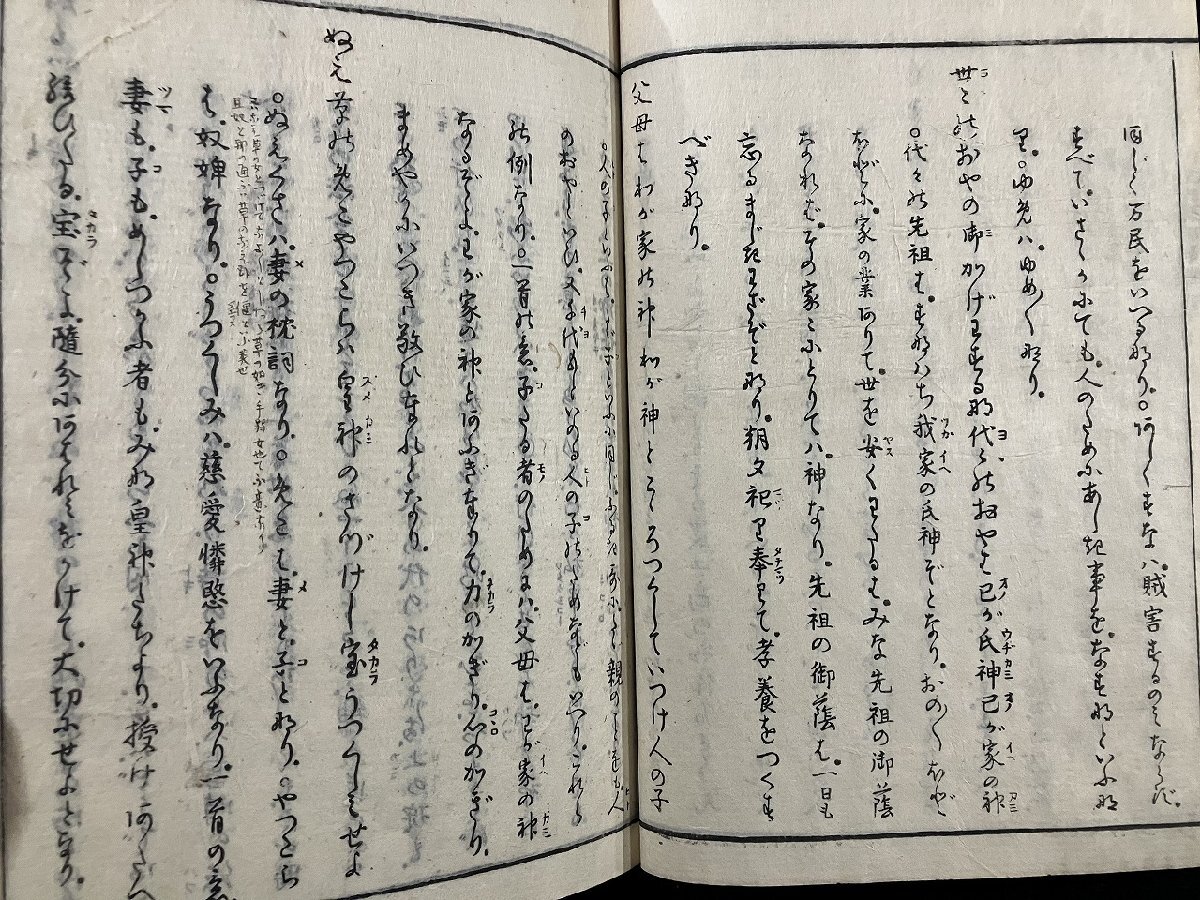 同じく万民をいへるなり。○あしくすなハ。賊害するのミならず。
すべて。いさゝかにても。人のためにあしき事を。なすなといふな
り。○ゆめハ。ゆめ〳〵なり。
世々のおやの御かげわするな代々のおやは己が氏神己が家の神
○代々の先祖は。すなハち我家の氏神ぞとなり。おの〳〵
ほどに。家の業ありて。世を安くわたるは。みな先祖の御蔭
なれば。その家々にとりてハ。神なり。先祖の御蔭は。一日も
忘るまじきわざぞとなり。朝夕祀り奉りて。孝養をつくす
べきなり。
父母はわが家の神わが神とこゝろつくしていつけ人の子
のおやといひ。又千代もといのる人の子のためなどもいへり。これら
の例なり。○一首の意。子たる者のためにハ。父母は。わが家の神
なるぞよ。わが家の神とあふぎ奉りて。力のかぎり。心のかぎり。
まめやかにいつき敬ひまつれとなり。
ぬえ草のめこやつこらハ皇神のさづけし宝うつくしミせよ
○ぬえくさハ。妻の枕詞なり。○めこは。妻と。子となり。○やつこら
は。奴婢なり。○うつくしみハ。慈愛憐愍をいふなり。一首の意
妻も。子も。めしつかふ者も。みな皇神たちより。授けあたへ
給ひたる。宝ぞよ。随分にあはれミをかけて。大切にせよとなり。